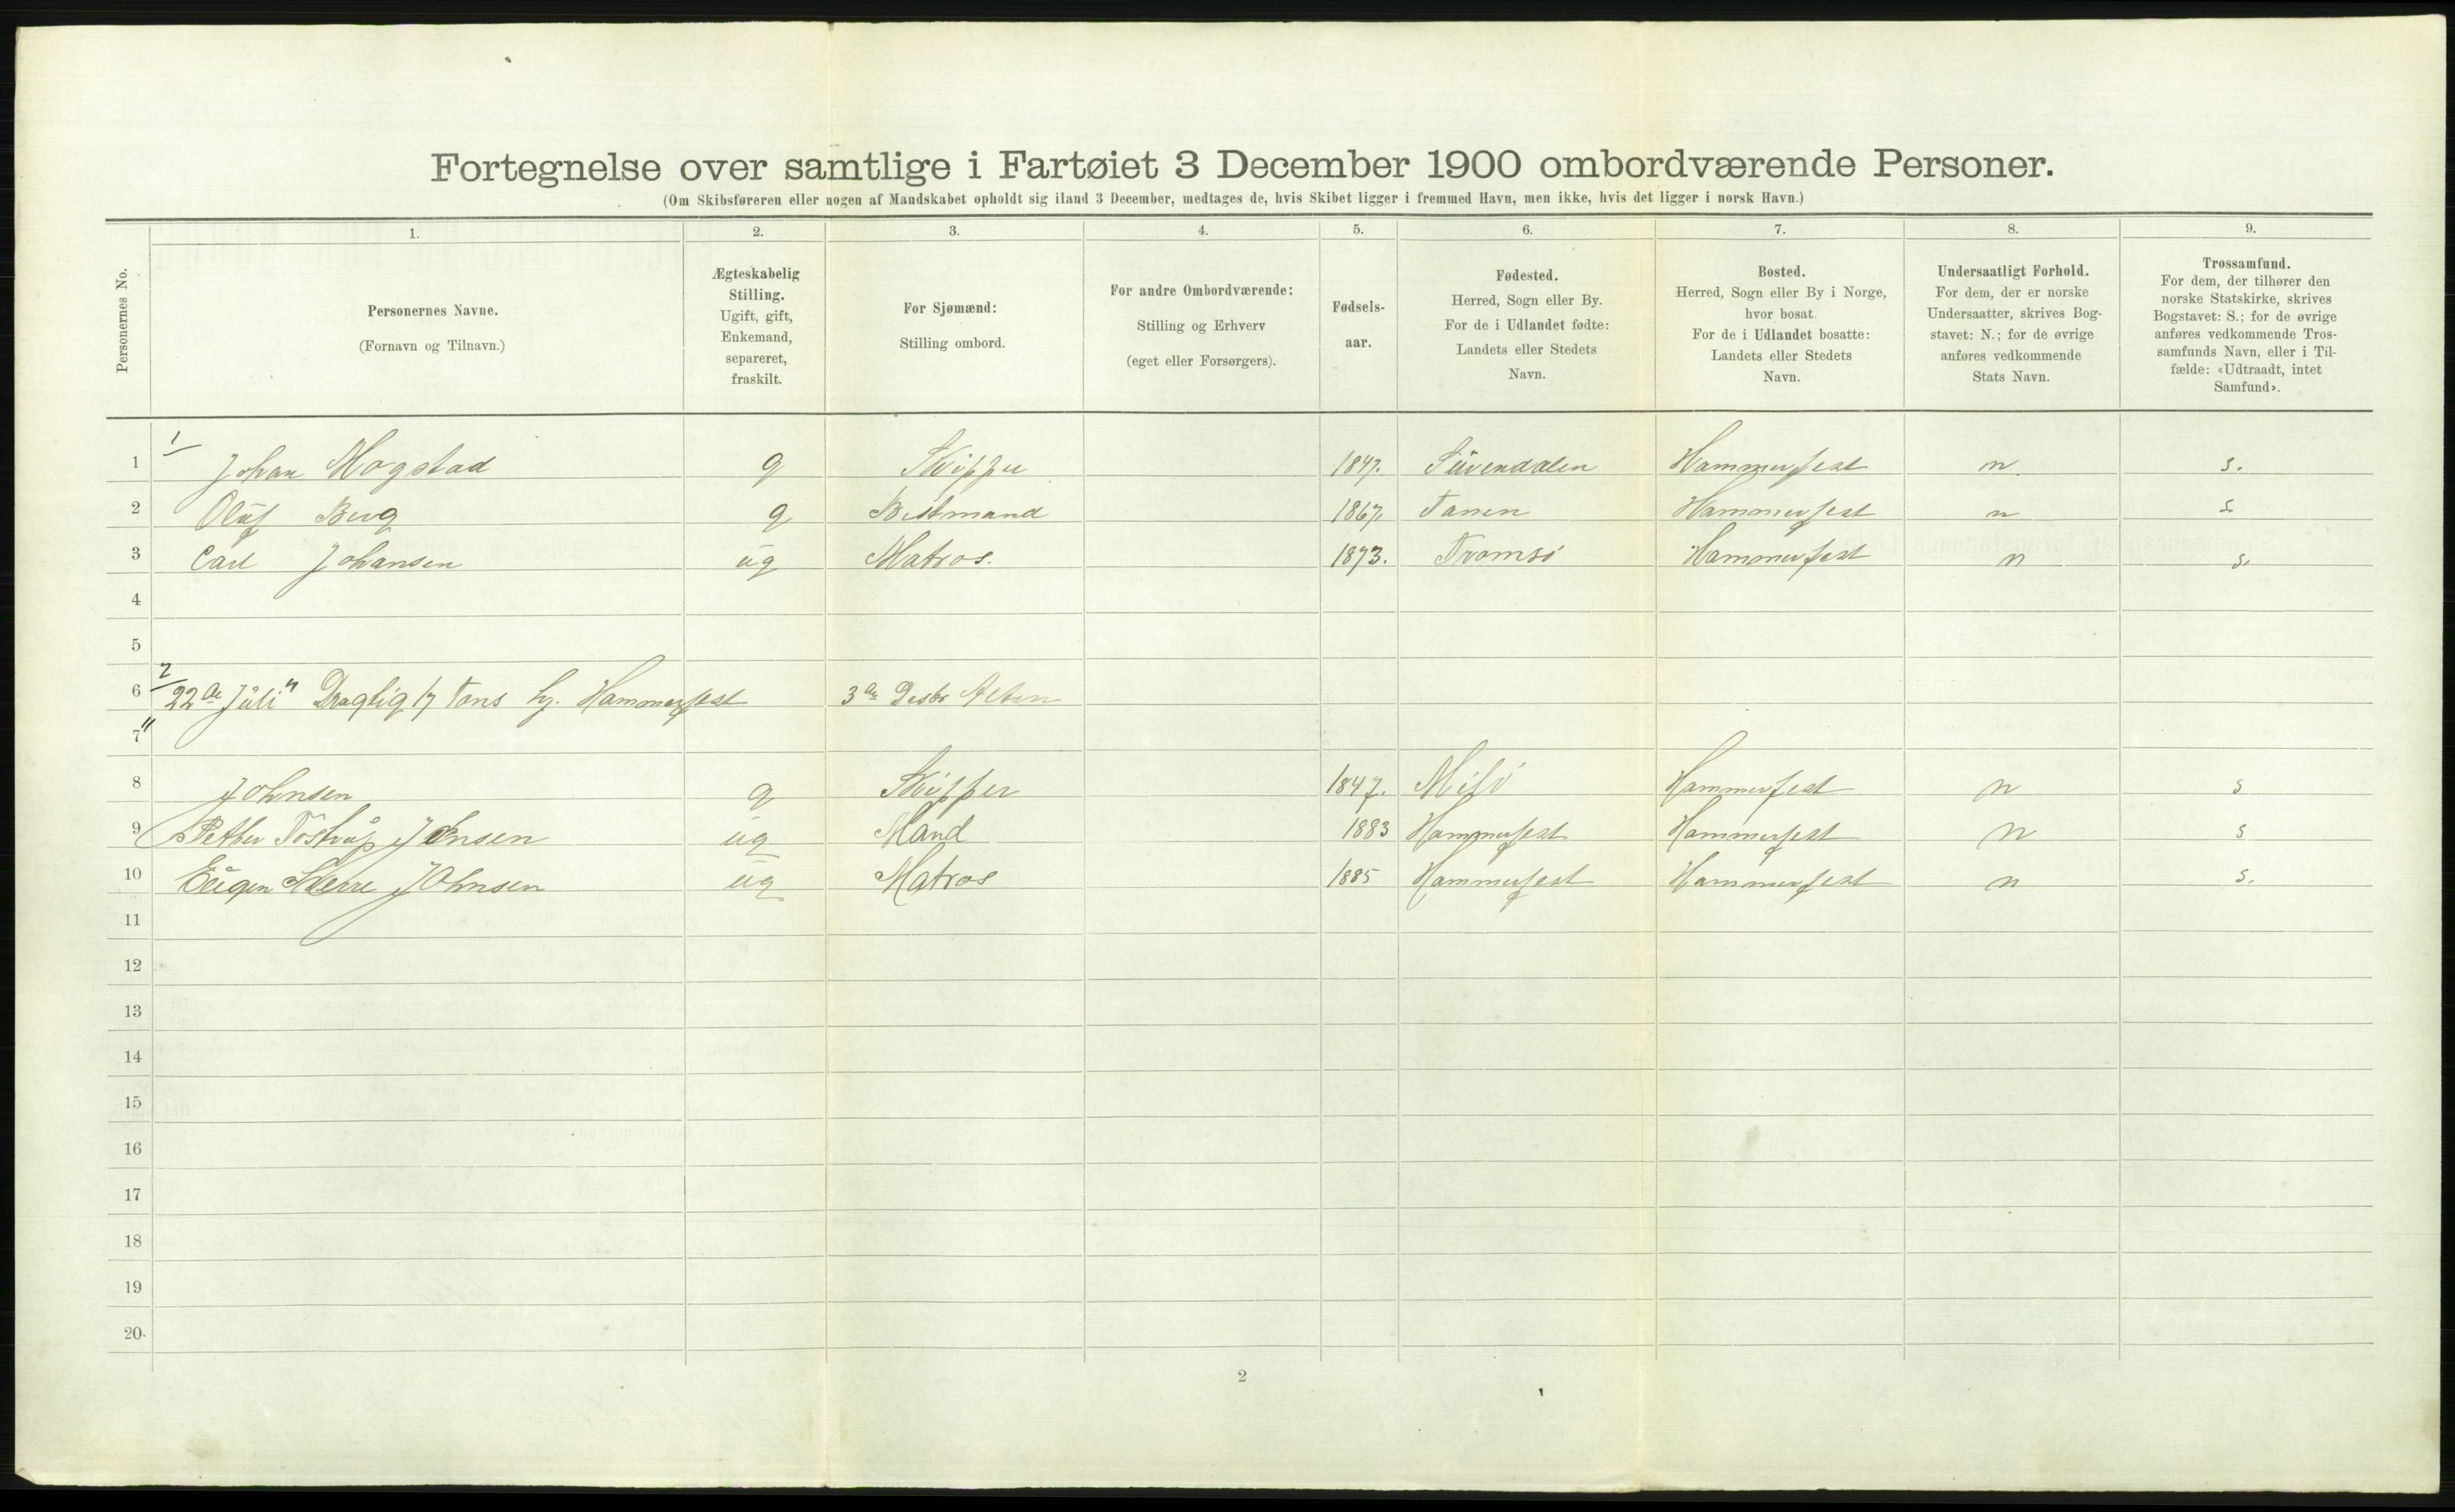 Fortegnelse over samtlige i Fartøiet 3 December 1900 ombordværende Personer.
(Om Skibsføreren eller nogen af Mandskabet opholdt sig iland 3 December, medtages de, hvis Skibet ligger i fremmed Havn, men ikke, hvis det ligger i norsk Havn.)
Personernes No.
1. 2. 3. 4. 5. 6. 7. 8. 9.
Personernes Navne.
(Fornavn og Tilnavn.)
Ægteskabelig
Stilling.
Ugift, gift,
Enkemand,
separeret,
fraskilt.
For Sjømænd:
Stilling ombord.
For andre Ombordværende:
Stilling og Erhverv
(eget eller Forsørgers).
Fødsels-
aar.
Fødested.
Herred, Sogn eller By.
For de i Udlandet fødte:
Landets eller Stedets
Navn.
Bosted.
Herred, Sogn eller By i Norge,
hvor bosat.
For de i Udlandet bosatte:
Landets eller Stedets
Navn.
Undersaatligt Forhold.
For dem, der er norske
Undersaatter, skrives Bog-
stavet: N.; for de øvrige
anføres vedkommende
Stats Navn.
Trossamfund.
For dem, der tilhører den
norske Statskirke, skrives
Bogstavet: S.; for de øvrige
anføres vedkommende Tros-
samfunds Navn, eller i Til-
fælde: «Udtraadt, intet
Samfund».
1/
1 Johan Mogstad g Skipper 1847. Hammerfest n s.
2 Oluf Berg g Bestmand 1867. Tanen Hammerfest n s.
3 Carl Johansen ug Matros. 1873. Tromsö Hammerfest n s.
4
5
2/
6 22de Juli" Drægtig 17 Tons hj. Hammerfest 3de Desbr Alten
7 "
8 Johnsen g Skipper 1847. Hammerfest n s
9 Pether Tostrup Johnsen ug Mand 1883 Hammerfest Hammerfest n s
10 Eugen Johnsen ug Matros 1885 Hammerfest Hammerfest n s.
11
12
13
14
15
16
17
18
19
20.
2